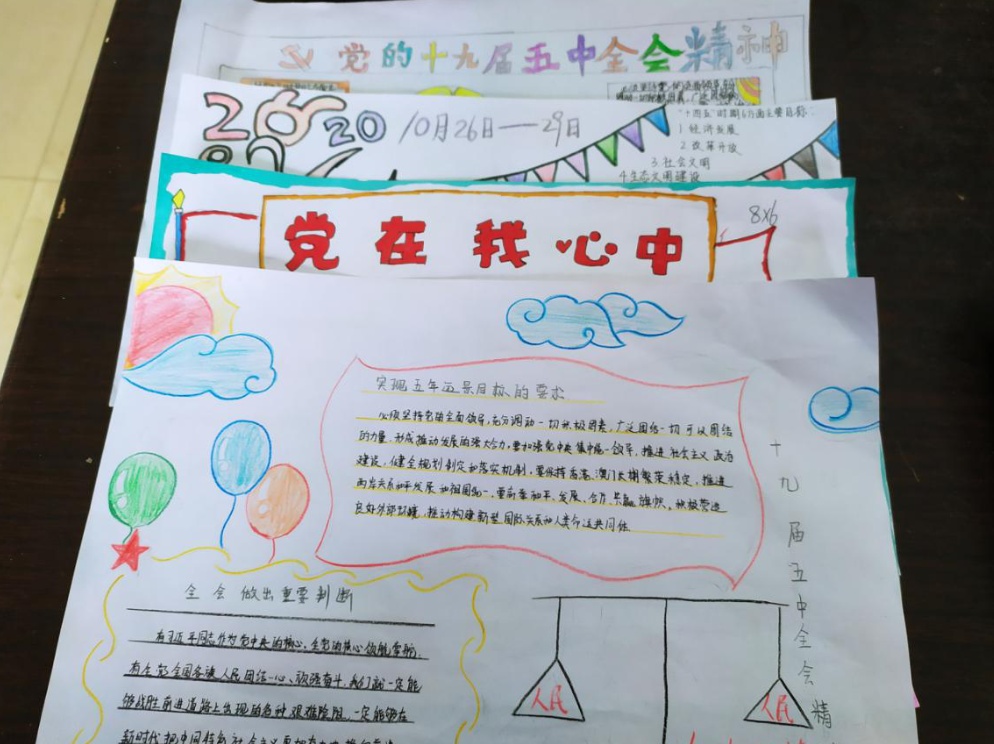 党的十九届五中全会精神
2020
10月26日——29日
"十四五"时期6方面主要目标:
1 经济发展
2.改革开放
3.社会文明
4.生态文明建设
8x6
党在我心中
实现五年远景目标的要求
必须坚持党的全面领导,充分调动一切积极因素,广泛团结一切可以团结
的力量,形成推动发展的强大合力,要加强党中央集中统一领导,推进社会主义政治
建设,健全规划制定和落实机制,要保持香港、澳门长期繁荣稳定,推进
两岸关系和平发展和祖国统一,要高举和平、发展、合作、共赢旗帜,积极营造
良好外部环境,推动构建新型国际关系和人类命运共同体
十九届五中全会精
全会做出重要判断
有习近平同志作为党中央的核心、全党的核心领航掌舵,
有全党全国各族人民团结一心、顽强奋斗,我们就一定能
够战胜前进道路上出现的各种艰难险阻,一定能够在
新时代把中国特色社会主义
人民
人民